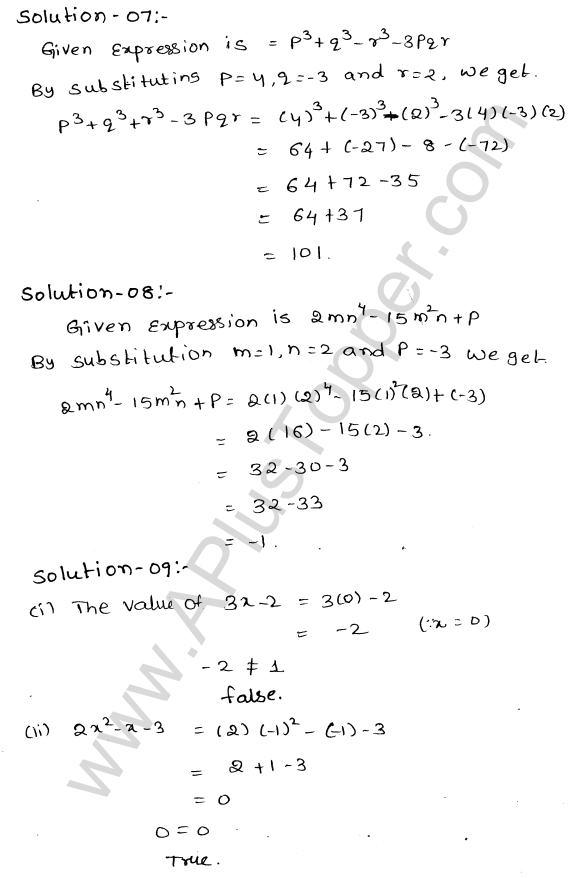 Solution-07:-
Given Expression is = P³+q³-r³-3Pqr
By substituting P=4, q=-3 and r=2, we get.
P³+q³+r³-3Pqr = (4)³+(-3)³-(2)³-3(4)(-3)(2)
= 64+(-27)-8-(-72)
= 64+72-35
= 64+37
= 101.
Solution-08:-
Given Expression is 2mn⁴-15m²n+P
By substitution m=1, n=2 and P=-3 we get
2mn⁴-15m²n+P = 2(1)(2)⁴-15(1)²(2)+(-3)
= 2(16)-15(2)-3.
= 32-30-3
= 32-33
= -1.
Solution-09:-
(i) The value of 3x-2 = 3(0)-2
= -2 (∵x=0)
-2 ≠ 1
false.
(ii) 2x²-x-3 = (2)(-1)²-(-1)-3
= 2+1-3
= 0
0=0
True.
www.APlusTopper.com